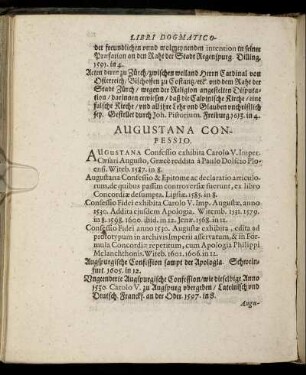 LIBRI DOGMATICO-
der freundlichen vnnd wolgemeynden intention in seiner
Præfation an den Raht der Stadt Regenspurg. Dilling.
1597. in 4.
Acten derer zu Zürch / zwischen weiland Herrn Cardinal von
Osterreich / Bischoffen zu Costantz / etc. vnd dem Raht der
Stadt Zürch / wegen der Religion angestelten Disputa-
tion / darinnen erwiesen / daß die Calvinische Kirche / eine
falsche Kirche / vnd all ihre Lehr vnd Glauben vnchristlich
sey. Gestellet durch Joh. Pistorium. Freiburg 1603. in 4.
AUGUSTANA CON-
FESSIO.
AUGUSTANA Confessio exhibita Carolo V. Imper.
Cæsari Augusto, Græcè reddita à Paulo Dolscio Pla-
vensi. Witeb. 1587. in 8.
Augustana Confessio & Epitome ac declaratio articulo-
rum, de quibus passim controversiæ fuerunt, ex libro
Concordiæ desumpta. Lipsiæ. 1585. in 8.
Confessio Fidei exhibita Carolo V. Imp. Augustæ, anno
1530. Addita ejusdem Apologia. Witemb. 1551. 1579.
in 8. 1598. 1600. ibid. in 12. Jenæ. 1568. in 11.
Confessio Fidei anno 1530. Augustæ exhibita, edita ad
prototypum in archivis Imperii asservatum, & in For-
mula Concordiæ repetitum, cum Apologia Philippi
Melanchthonis. Witeb. 1602. 1606. in 11.
Augspurgische Confession sampt der Apologia. Schwein-
furt. 1605. in 12.
Ungeenderte Augspurgische Confession / wie dieselbige Anno
1530. Carolo V. zu Augspurg vbergeben / Lateinisch vnd
Deutsch. Franckf. an der Oder. 1597. in 8.
Augu-